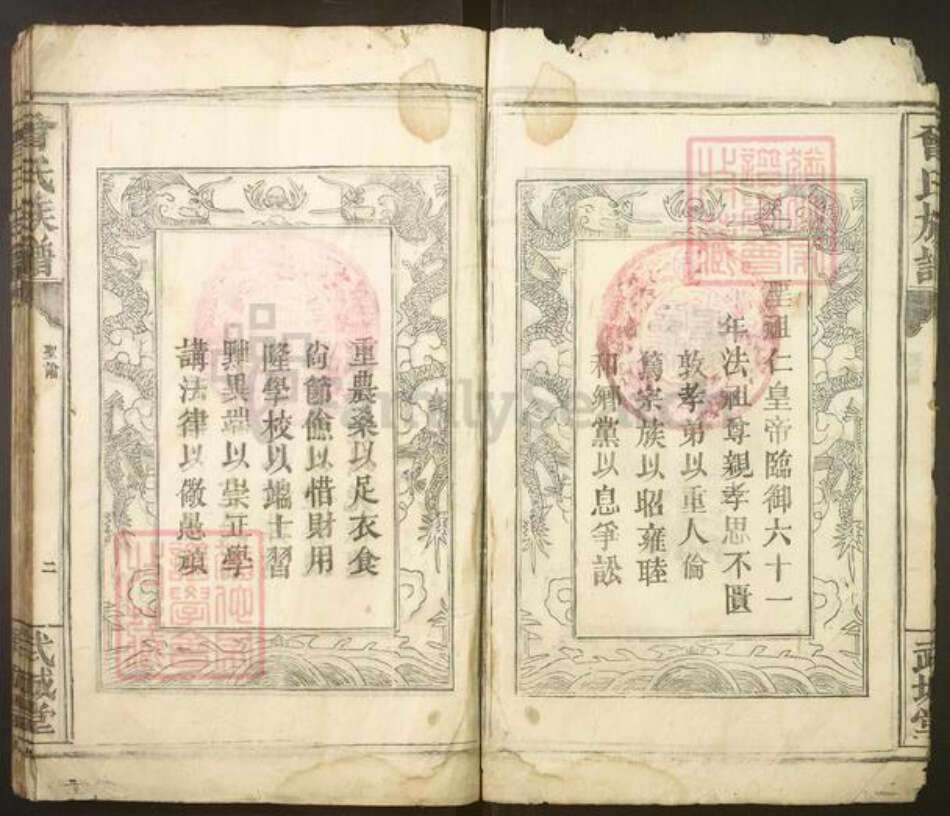 聖祖仁皇帝臨御六十一
年法祖尊親孝思不匱
敦孝弟以重人倫
篤宗族以昭雍睦
和鄉黨以息爭訟
曾氏族譜
武城堂
重農桑以足衣食
尙節儉以惜財用
隆學校以端士習
黜異端以崇正學
講法律以儆愚頑
曾氏族譜
聖諭
二
武城堂
FamilySearch